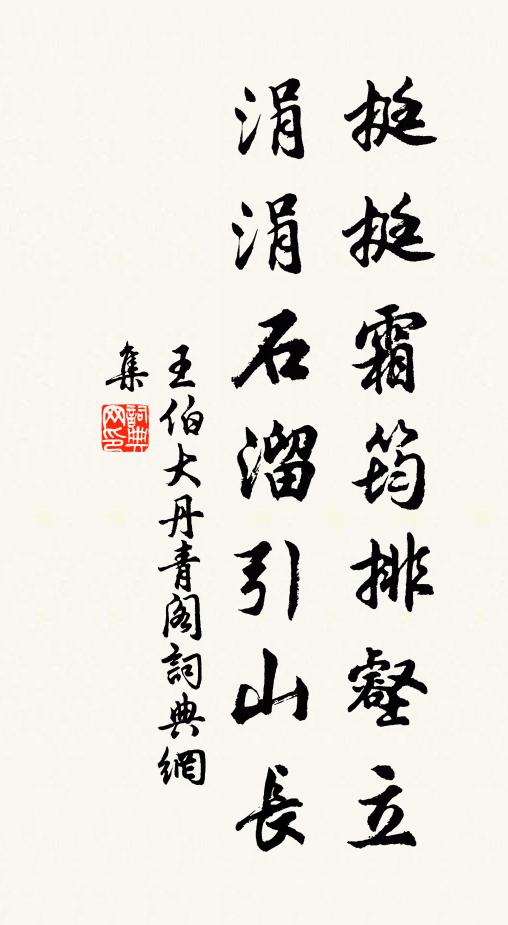 挺挺霜筠排壑立
涓涓石溜引山長
王伯大丹青閣詞典網
集
詞典網印